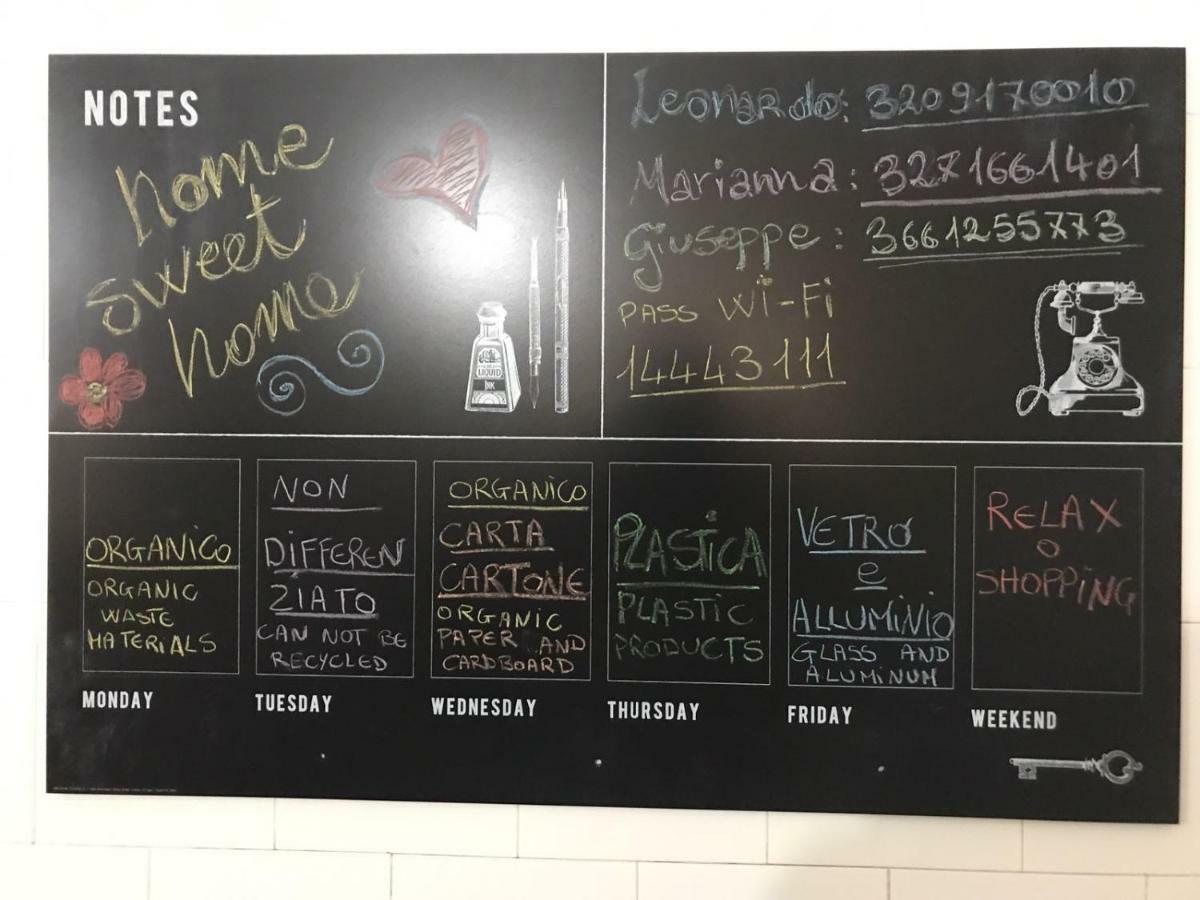 NOTES
home
sweet
home
LIQUID
INK
Leonardo: 3209170010
Marianna: 3271661401
Giuseppe: 3661255773
PASS Wi-Fi
14443111
ORGANICO
ORGANIC
WASTE
MATERIALS
MONDAY
NON
DIFFEREN
ZIATO
CAN NOT BE
RECYCLED
TUESDAY
ORGANICO
CARTA
CARTONE
ORGANIC
PAPER AND
CARDBOARD
WEDNESDAY
PLASTICA
PLASTIC
PRODUCTS
THURSDAY
VETRO
e
ALLUMINIO
GLASS AND
ALUMINUM
FRIDAY
RELAX
O
SHOPPING
WEEKEND